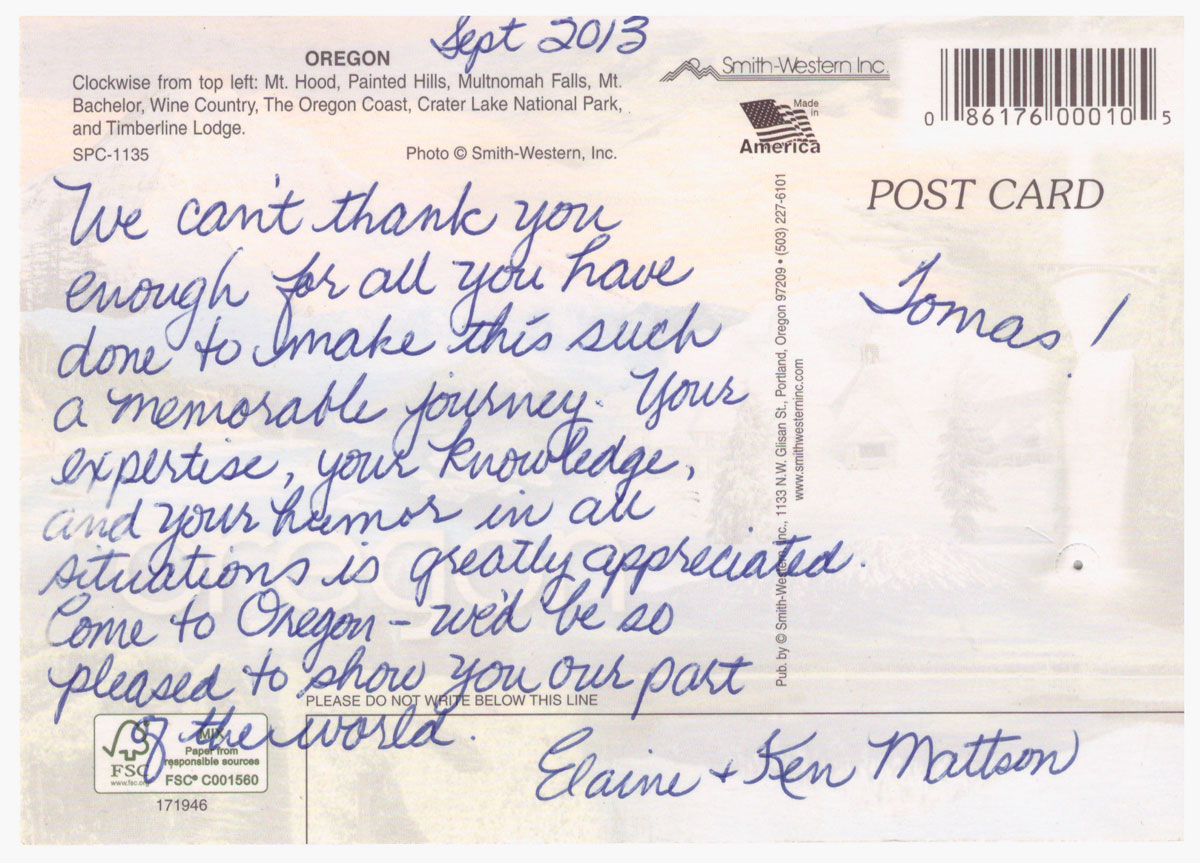 Sept 2013
OREGON
Clockwise from top left: Mt. Hood, Painted Hills, Multnomah Falls, Mt.
Bachelor, Wine Country, The Oregon Coast, Crater Lake National Park,
and Timberline Lodge.
SPC-1135
Photo © Smith-Western, Inc.
Smith-Western Inc.
Made
in
America
0 86176 00010 5
POST CARD
Tomas!
We can't thank you
enough for all you have
done to make this such
a memorable journey. Your
expertise, your knowledge,
and your humor in all
situations is greatly appreciated.
Come to Oregon – we'd be so
pleased to show you our part
of the world.
Elaine + Ken Mattson
Pub. by © Smith-Western, Inc., 1133 N.W. Glisan St., Portland, Oregon 97209 • (503) 227-6101
www.smithwesterninc.com
PLEASE DO NOT WRITE BELOW THIS LINE
MIX
Paper from
responsible sources
FSC
www.fsc.org
FSC® C001560
171946
oregon